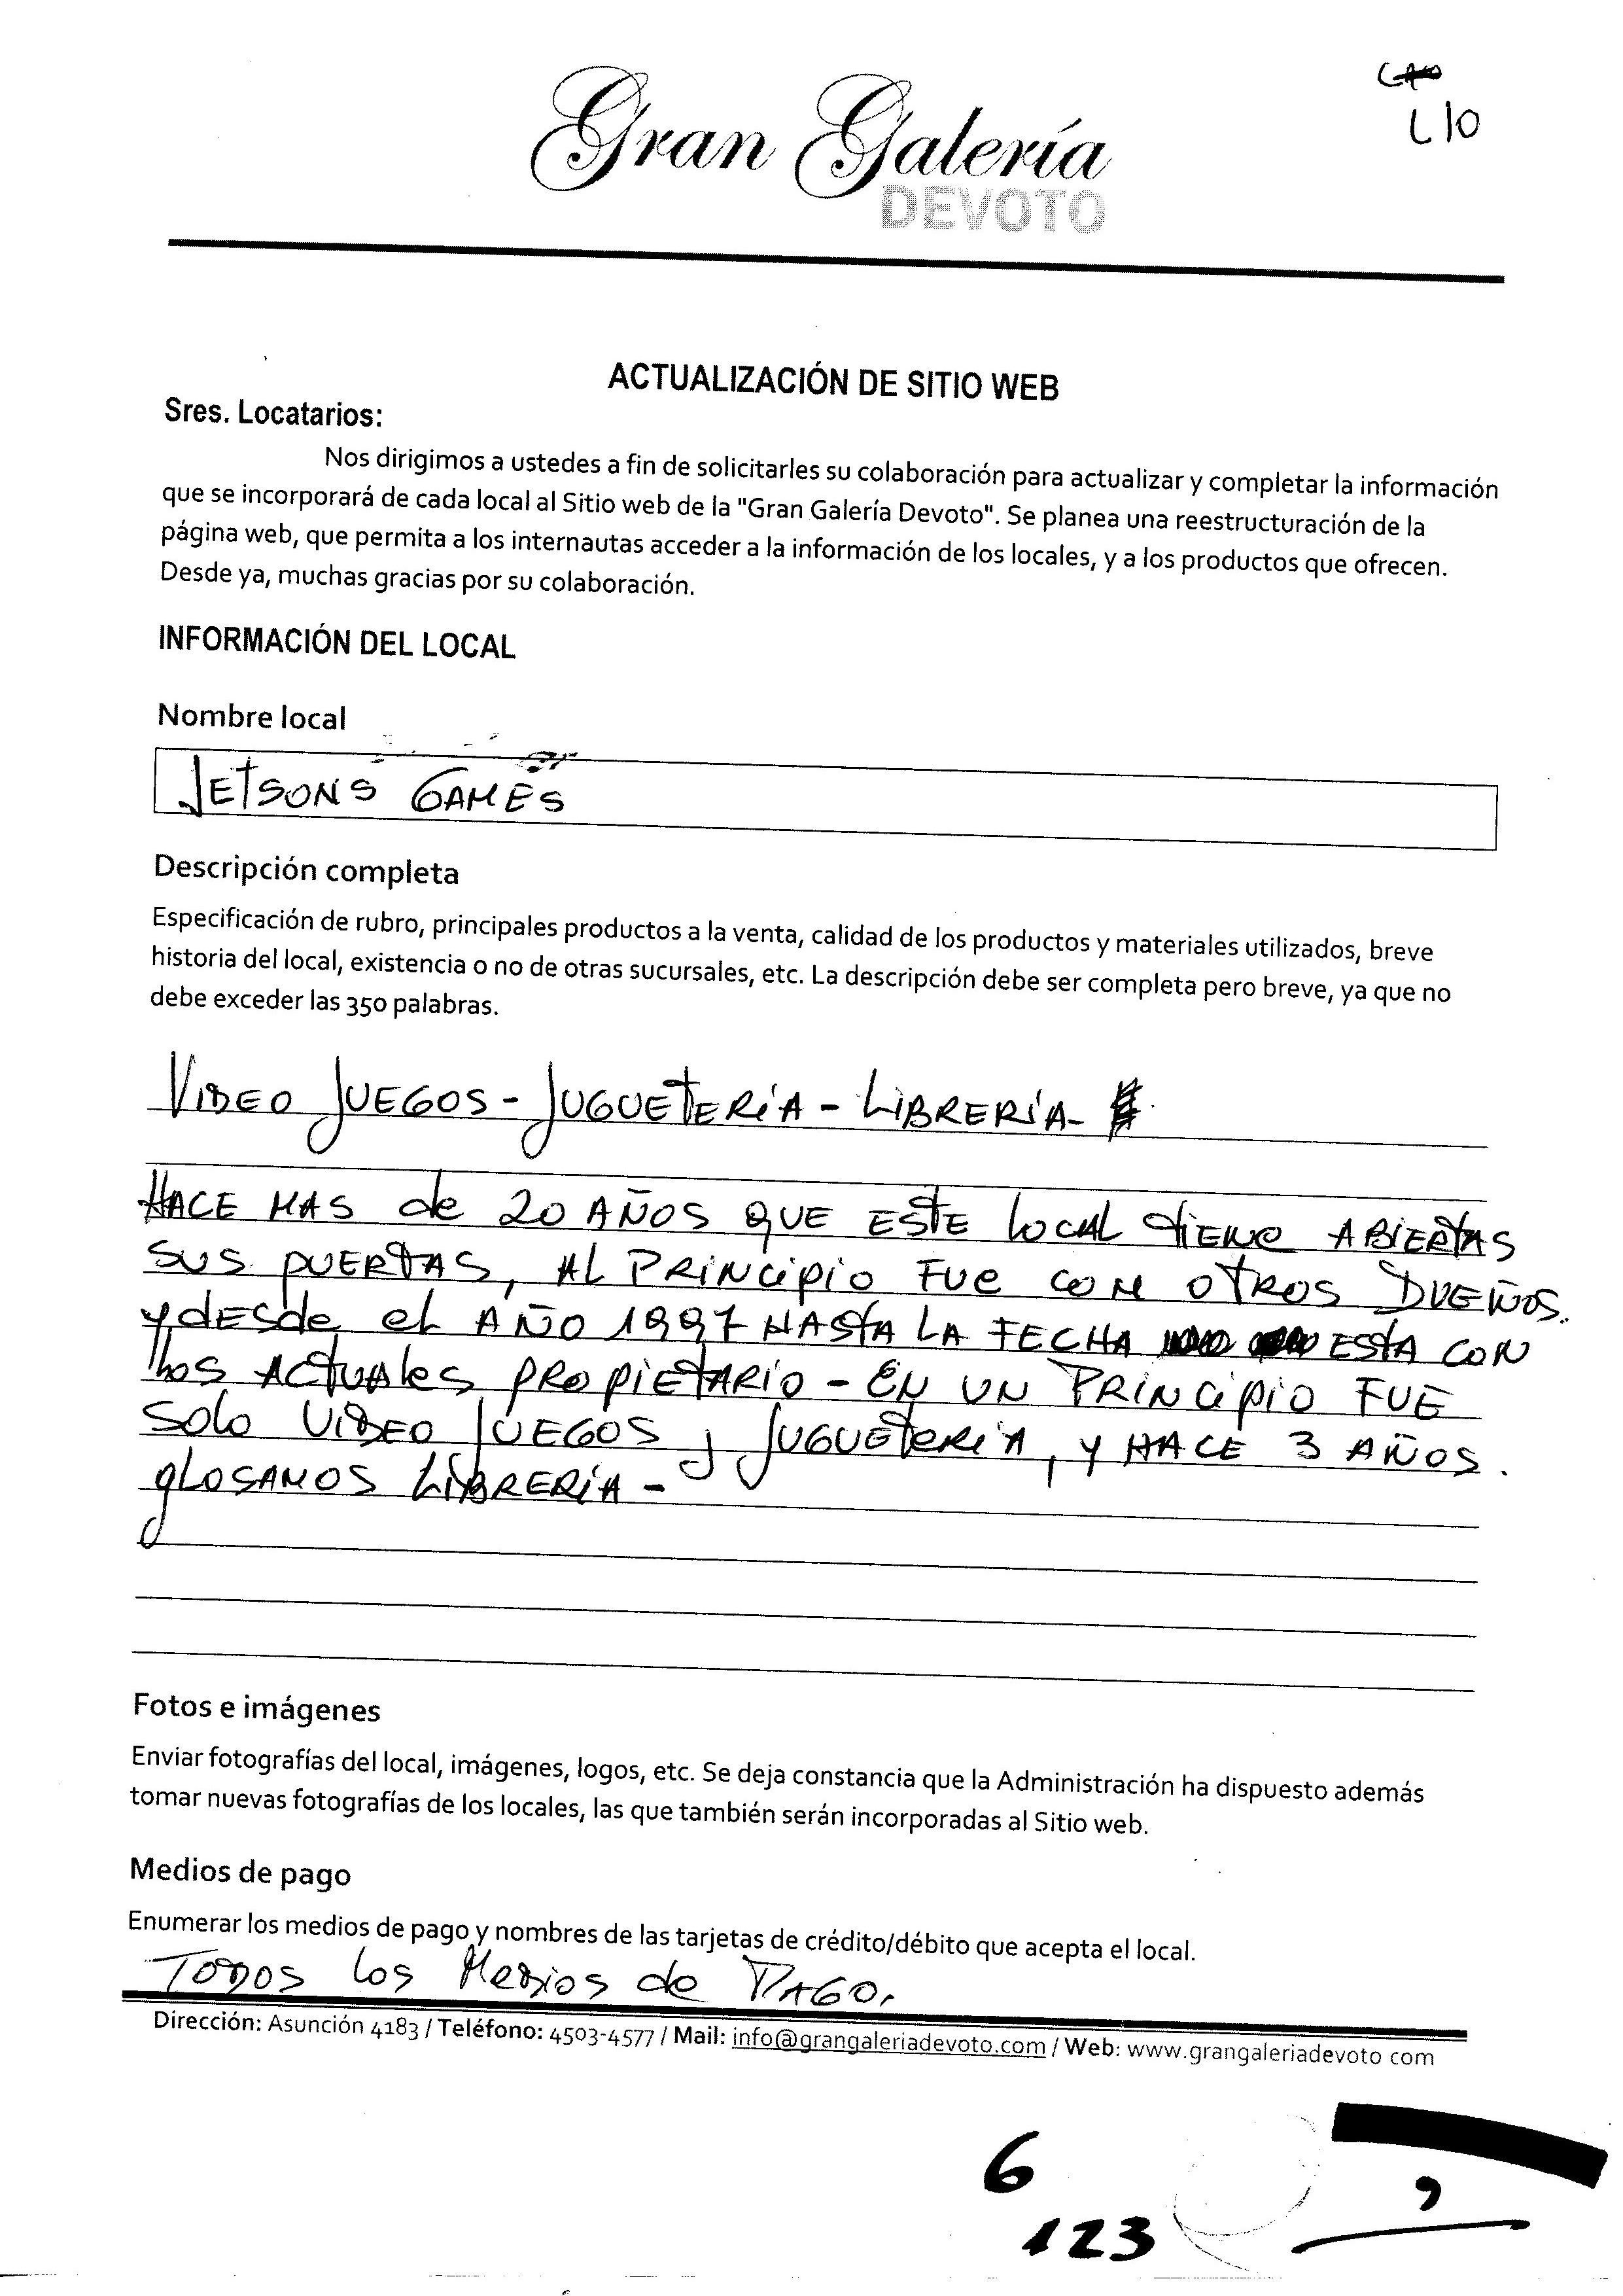 L10
Gran Galería
DEVOTO
ACTUALIZACIÓN DE SITIO WEB
Sres. Locatarios:
Nos dirigimos a ustedes a fin de solicitarles su colaboración para actualizar y completar la información
que se incorporará de cada local al Sitio web de la "Gran Galería Devoto". Se planea una reestructuración de la
página web, que permita a los internautas acceder a la información de los locales, y a los productos que ofrecen.
Desde ya, muchas gracias por su colaboración.
INFORMACIÓN DEL LOCAL
Nombre local
JETSONS GAMES
Descripción completa
Especificación de rubro, principales productos a la venta, calidad de los productos y materiales utilizados, breve
historia del local, existencia o no de otras sucursales, etc. La descripción debe ser completa pero breve, ya que no
debe exceder las 350 palabras.
VIDEO JUEGOS - JUGUETERÍA - LIBRERÍA-
HACE MAS de 20 AÑOS QUE ESTE LOCAL TIENE ABIERTAS
SUS PUERTAS, AL PRINCIPIO FUE CON OTROS DUEÑOS.
y desde el AÑO 1997 HASTA LA FECHA ESTA CON
LOS ACTUALES PROPIETARIO - EN UN PRINCIPIO FUE
SOLO VIDEO JUEGOS y JUGUETERÍA, y HACE 3 AÑOS.
GLOSAMOS LIBRERÍA -
Fotos e imágenes
Enviar fotografías del local, imágenes, logos, etc. Se deja constancia que la Administración ha dispuesto además
tomar nuevas fotografías de los locales, las que también serán incorporadas al Sitio web.
Medios de pago
Enumerar los medios de pago y nombres de las tarjetas de crédito/débito que acepta el local.
TODOS LOS MEDIOS de PAGO.
Dirección: Asunción 4183 / Teléfono: 4503-4577 / Mail: info@grangaleriadevoto.com / Web: www.grangaleriadevoto com
6
123